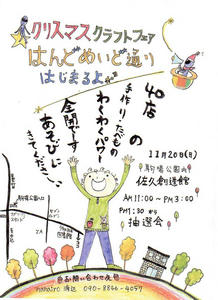 クリスマスクラフトフェア
はんどめいど通り
はじまるよ
40店の
手作り・たべもの
わくわくパワー
全開です!
あそびに
きてください
11月20日(日)
駒場公園内
佐久創造館
AM 11:00 ~ PM 3:00
PM1:30 から
抽選会
駒場公園入口
お問い合わせ先
090-8846-4059